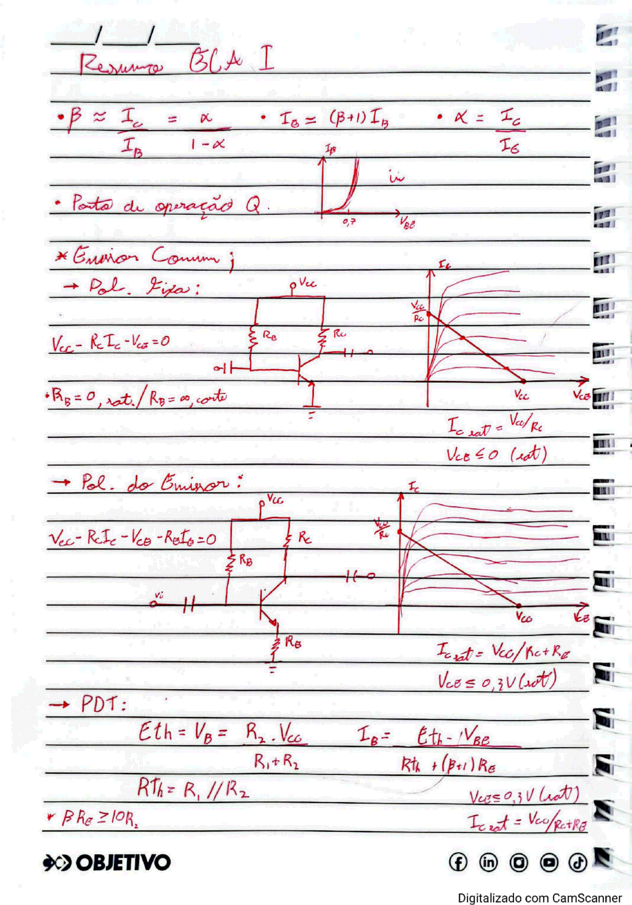 ___/___/___
Resumo ECA I
• β ≈ I_C / I_B = α / 1-α • I_E ≃ (β+1) I_B • α = I_C / I_E
I_B
• Ponto de operação Q.
0,7 V_BE
* Emissor Comum;
→ Pol. Fixa:
V_CC
I_C
R_B R_C
V_CC/R_C
V_CC - R_C I_C - V_CE = 0
• R_B = 0, sat. / R_B = ∞, corte
V_CC V_CE
I_C sat = V_CC/R_C
V_CE ≤ 0 (sat)
→ Pol. do Emissor:
V_CC
I_C
V_CC - R_C I_C - V_CE - R_E I_E = 0
R_C
V_CC/R_C
R_B
Vi
V_CC V_CE
R_E
I_C sat = V_CC/R_C+R_E
V_CE ≤ 0,3V (sat)
→ PDT:
Eth = V_B = R_2 . V_CC / R_1 + R_2 I_B = Eth - V_BE / Rth + (β+1) R_E
RTh = R_1 // R_2
V_CE ≤ 0,3V (sat)
* βR_E ≥ 10R_2
I_C sat = V_CC/R_C+R_E
OBJETIVO
Digitalizado com CamScanner